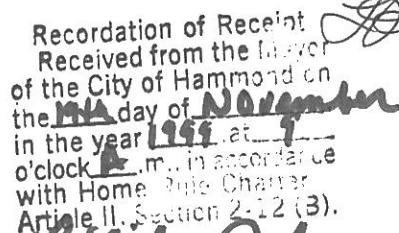 Recordation of Receipt
Received from the Mayor
of the City of Hammond on
the 19th day of November
in the year 1999 at 9
o'clock A.m., in accordance
with Home Rule Charter
Article II, Section 2-12 (B).